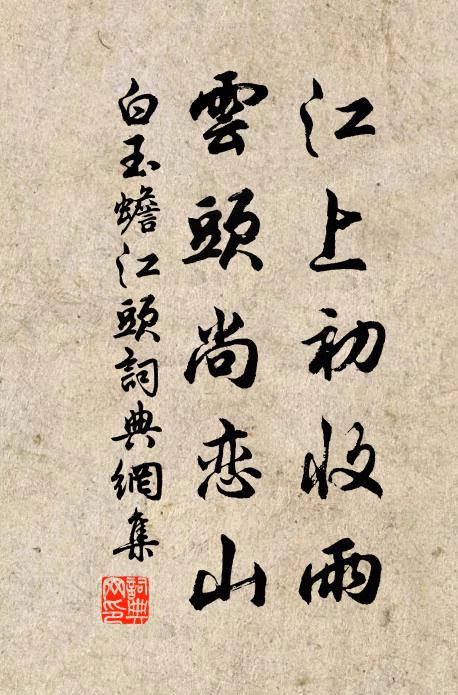 江上初收雨
雲頭尚恋山
白玉蟾江頭詞典網集
詞典网印